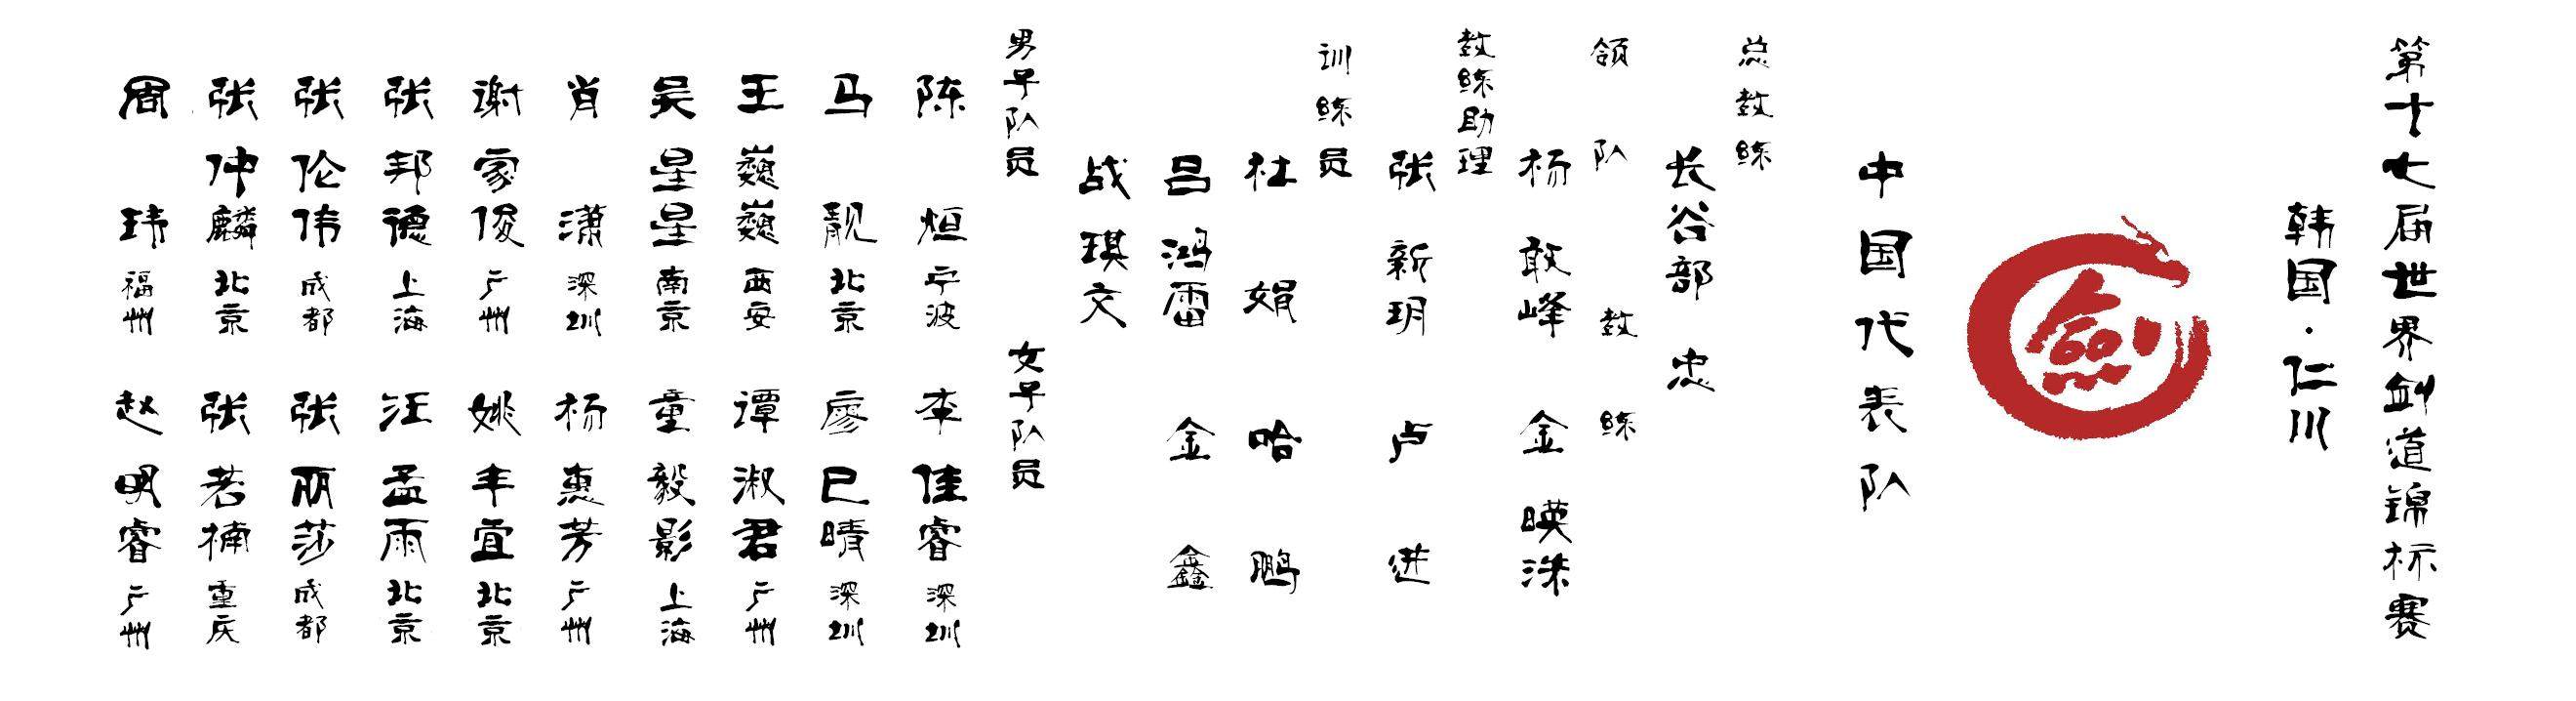 第十七届世界剑道锦标赛
韩国·仁川
中国代表队
总教练
长谷部 忠
领队
杨敢峰
教练
金暎洙
教练助理
张新玥
卢进
训练员
杜娟
哈鹏
吕鸿雷
金鑫
战琪文
男子队员
陈烜 宁波
马靓 北京
王巍巍 西安
吴星星 南京
肖潇 深圳
谢家俊 广州
张邦德 上海
张伦伟 成都
张仲麟 北京
周玮 福州
女子队员
李佳睿 深圳
廖巳晴 深圳
谭淑君 广州
童毅影 上海
杨惠芳 广州
姚丰宜 北京
汪孟雨 北京
张丽莎 成都
张若楠 重庆
赵明睿 广州